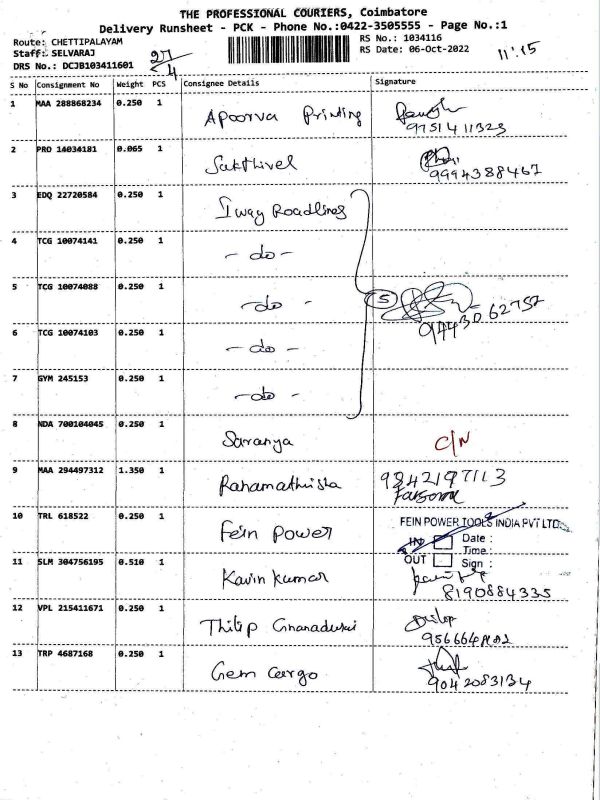 THE PROFESSIONAL COURIERS, Coimbatore
Delivery Runsheet - PCK - Phone No.:0422-3505555 - Page No.:1
Route: CHETTIPALAYAM
Staff: SELVARAJ
DRS No.: DCJB103411601
27/4
RS No.: 1034116
RS Date: 06-Oct-2022
11:15
S No Consignment No Weight PCS Consignee Details Signature
1 MAA 288868234 0.250 1 Apoorva Printing
9751411323
2 PRO 14034181 0.065 1 Sakthivel
9994388467
3 EDQ 22720584 0.250 1 Iway Roadlines
4 TCG 10074141 0.250 1 - do -
5 TCG 10074088 0.250 1 - do - 5
6 TCG 10074103 0.250 1 - do -
7 GYM 245153 0.250 1 - do -
8 NDA 700104045 0.250 1 Saranya C/N
9 MAA 294497312 1.350 1 Rahamathisha 9842197113
10 TRL 618522 0.250 1 Fein Power FEIN POWER TOOLS INDIA PVT LTD.
IN Date :
Time :
OUT Sign :
11 SLM 304756195 0.510 1 Kavin Kumar
8190884335
12 VPL 215411671 0.250 1 Thilip Gnanadurai
13 TRP 4687168 0.250 1 Gem Cargo
9042083134